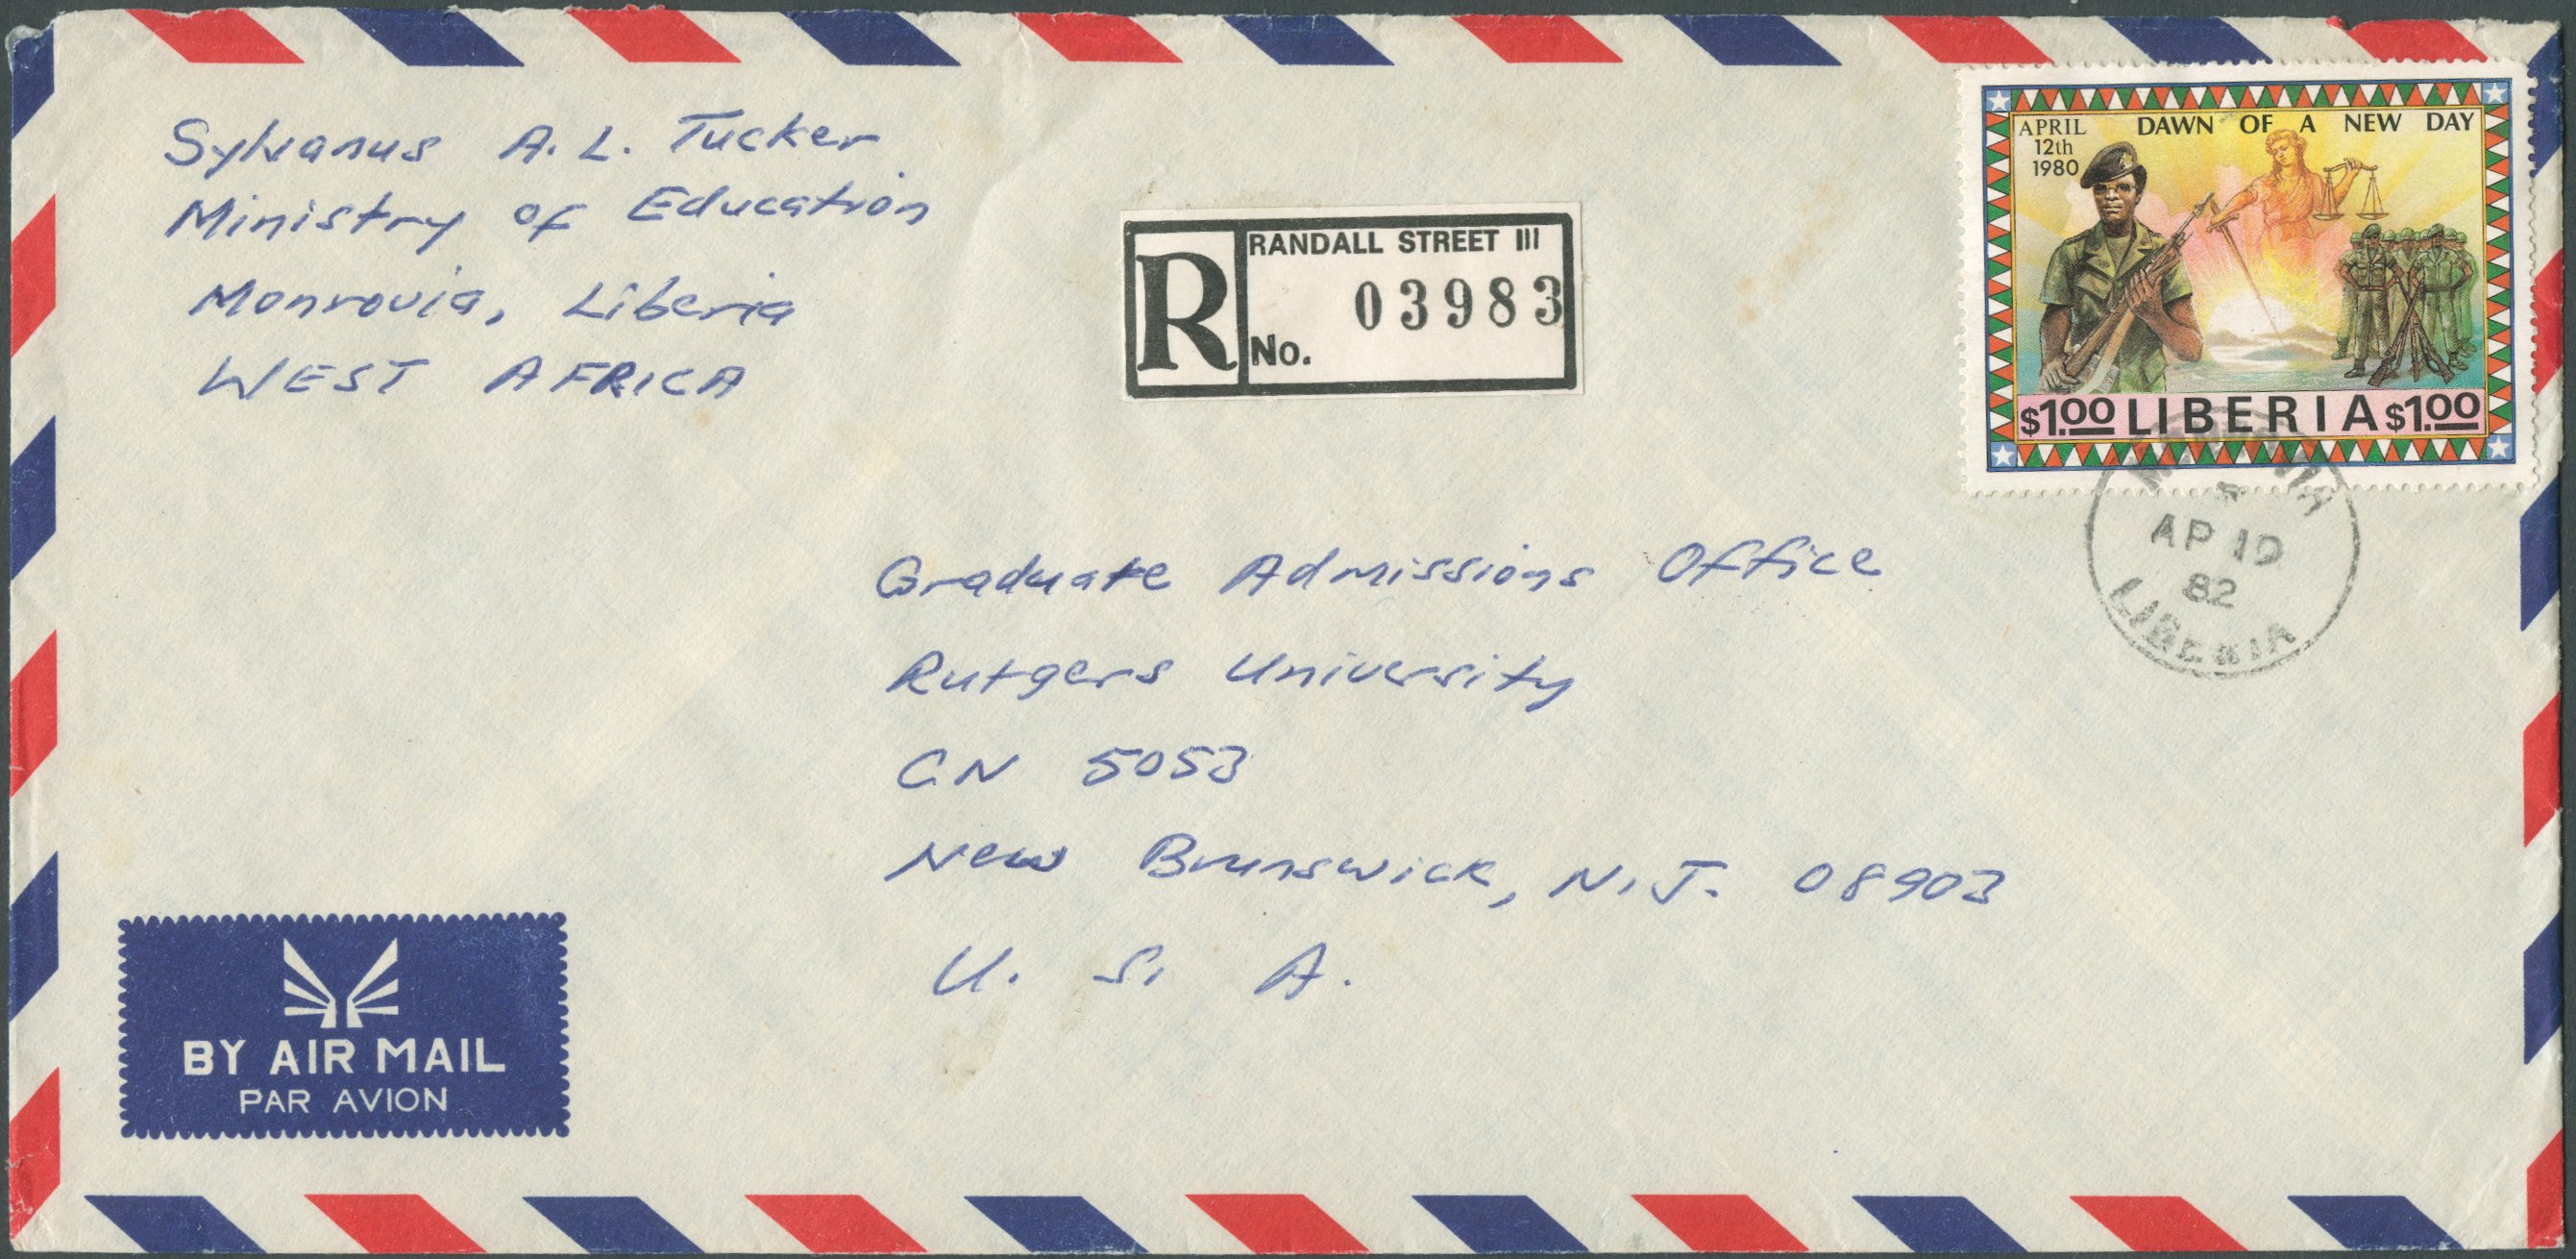 Sylvanus A. L. Tucker
Ministry of Education
Monrovia, Liberia
WEST AFRICA
R
RANDALL STREET III
No. 03983
APRIL 12th 1980
DAWN OF A NEW DAY
$1.00 LIBERIA $1.00
AP 19
82
LIBERIA
Graduate Admissions Office
Rutgers University
CN 5053
New Brunswick, N.J. 08903
U. S. A.
BY AIR MAIL
PAR AVION